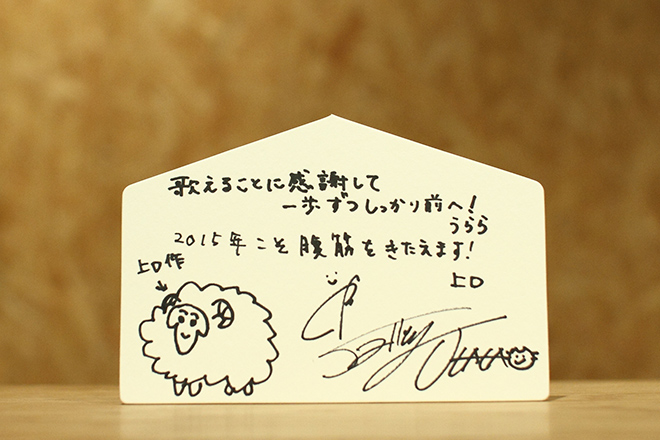 歌えることに感謝して
一歩ずつしっかり前へ!
うらら
2015年こそ腹筋をきたえます!
上口
上口作